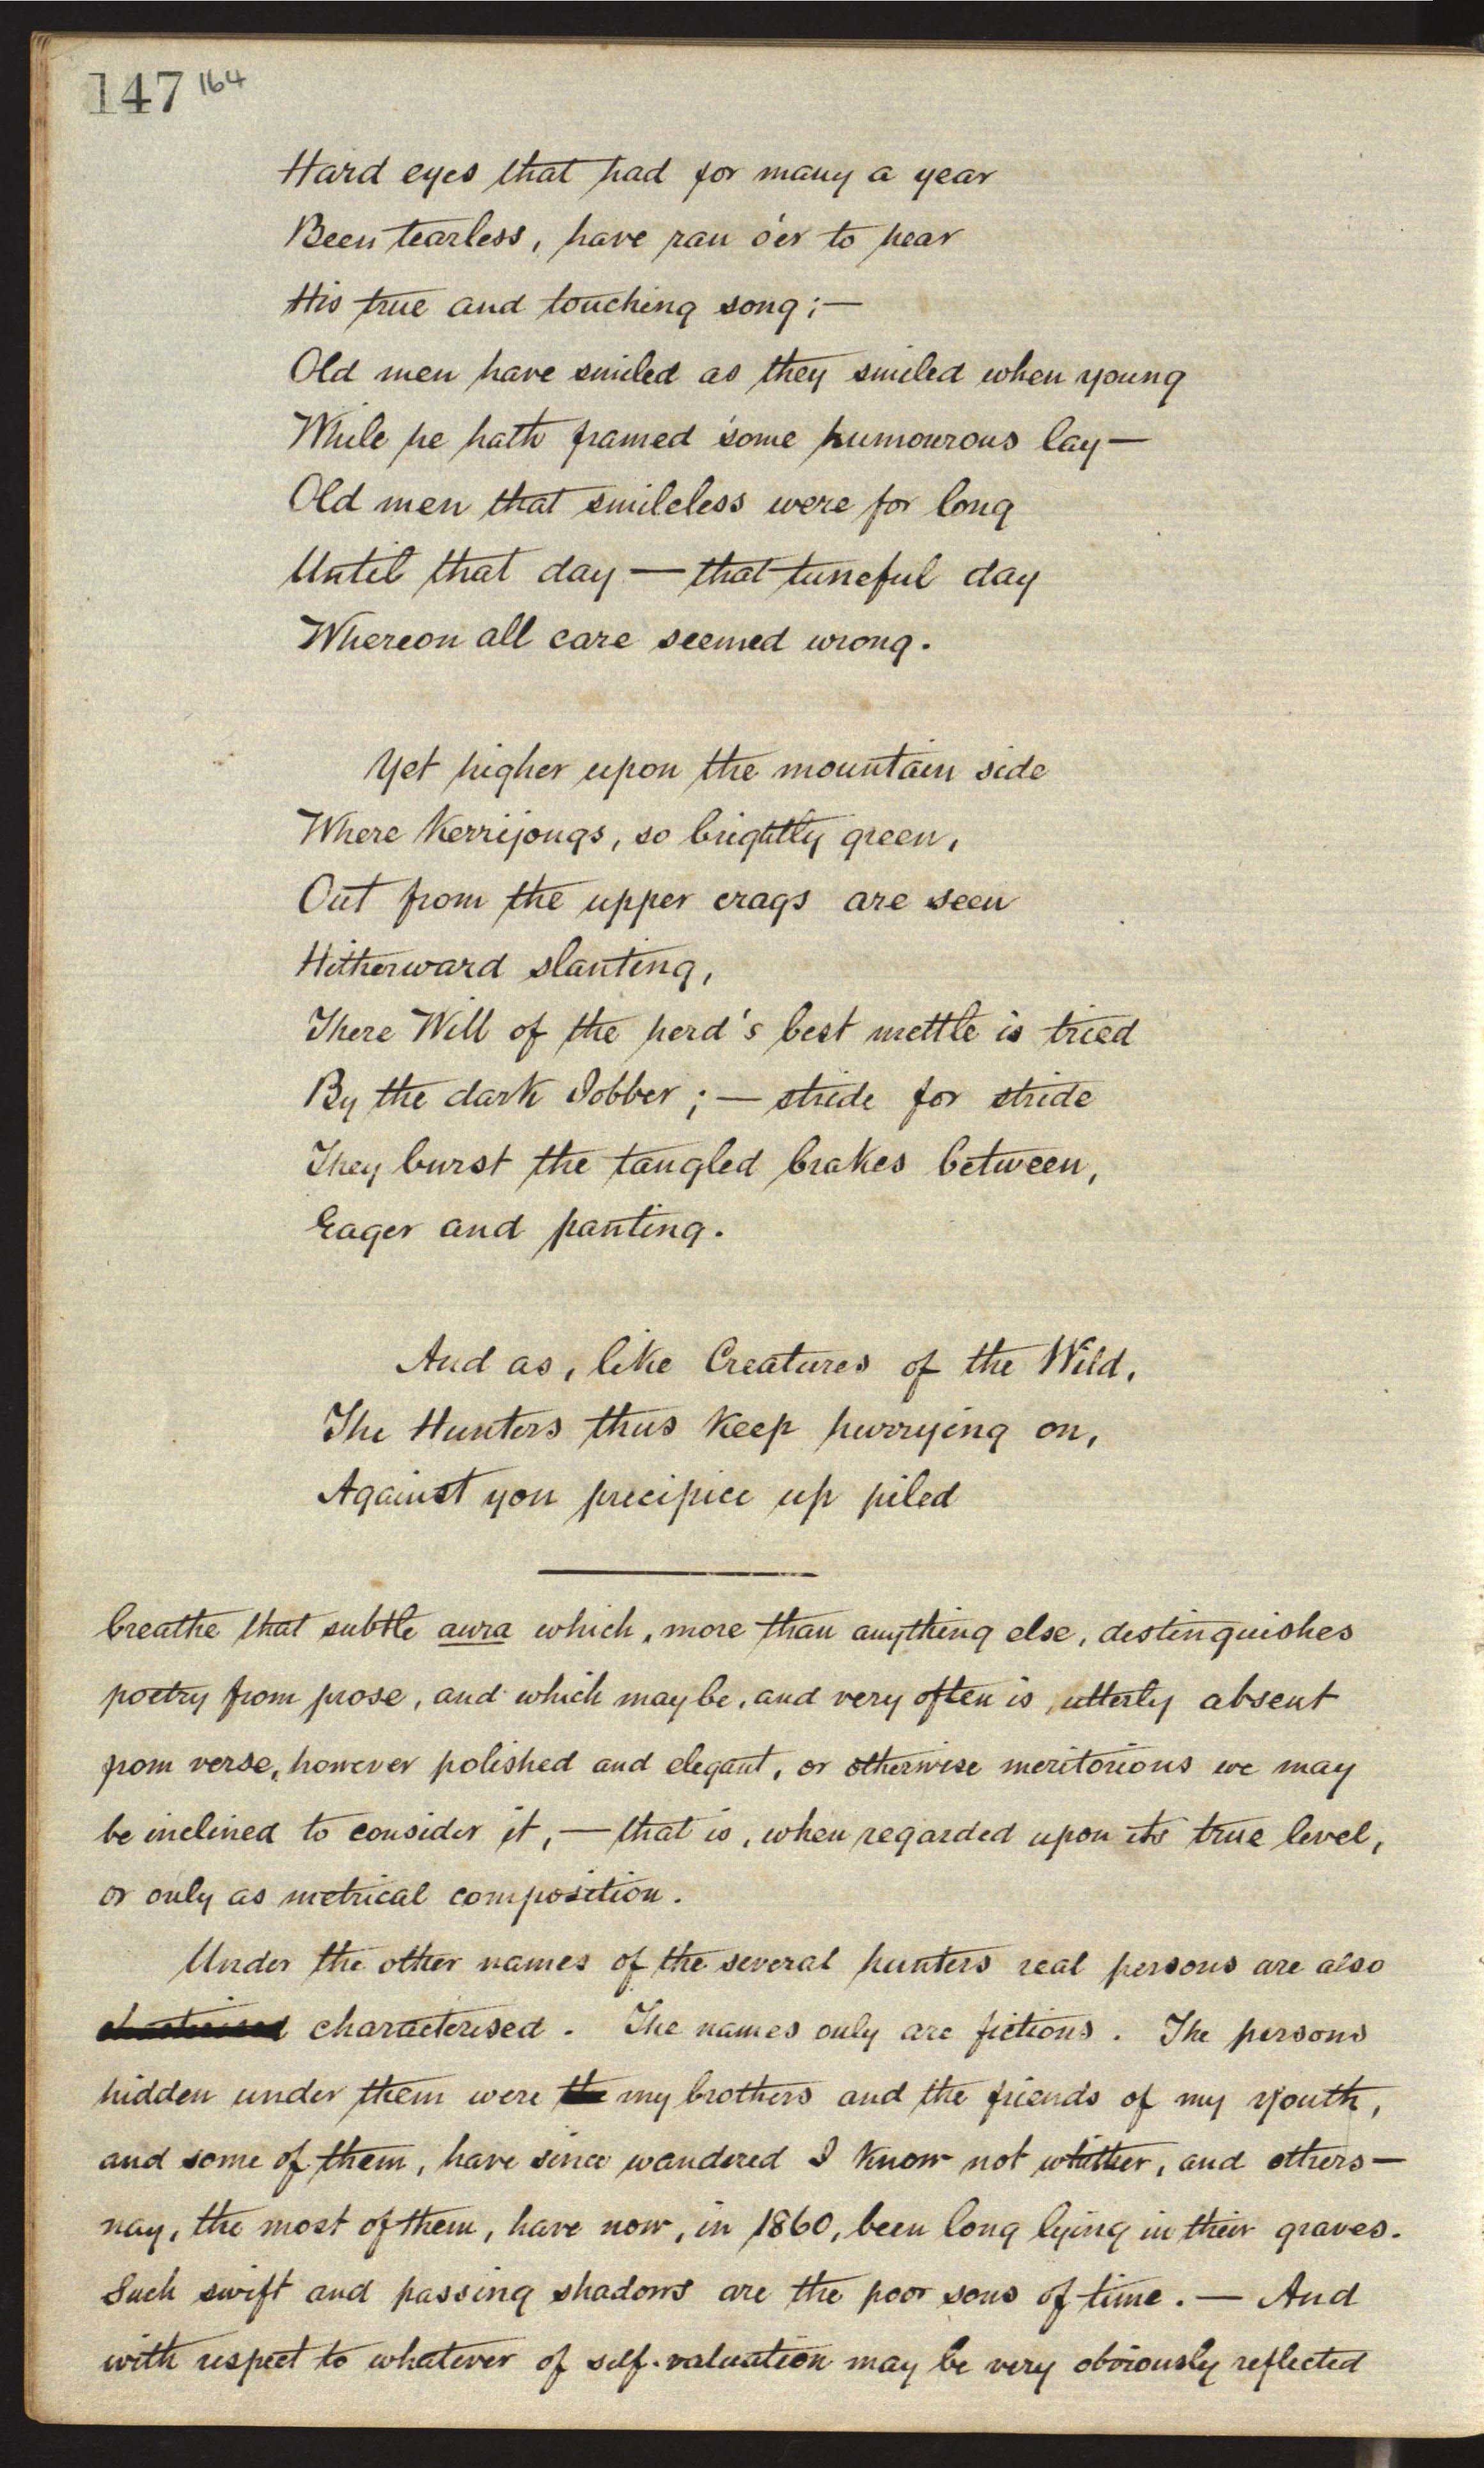 147 164
Hard eyes that had for many a year
Been tearless, have ran o'er to hear
His true and touching song;—
Old men have smiled as they smiled when young
While he hath framed some humourous lay—
Old men that smileless were for long
Until that day — that tuneful day
Whereon all care seemed wrong.
Yet higher upon the mountain side
Where Kerrijongs, so brightly green,
Out from the upper crags are seen
Hitherward slanting,
There Will of the herd's best mettle is tried
By the dark Jobber; — stride for stride
They burst the tangled brakes between,
Eager and panting.
And as, like Creatures of the Wild,
The Hunters thus keep hurrying on,
Against yon precipice up piled
breathe that subtle aura which, more than anything else, distinguishes
poetry from prose, and which may be, and very often is, utterly absent
from verse, however polished and elegant, or otherwise meritorious we may
be inclined to consider it, — that is, when regarded upon its true level,
or only as metrical composition.
Under the other names of the several hunters real persons are also
characterised. The names only are fictions. The persons
hidden under them were the my brothers and the friends of my youth,
and some of them, have since wandered I know not whither, and others—
nay, the most of them, have now, in 1860, been long lying in their graves.
Such swift and passing shadows are the poor sons of time. — And
with respect to whatever of self-valuation may be very obviously reflected